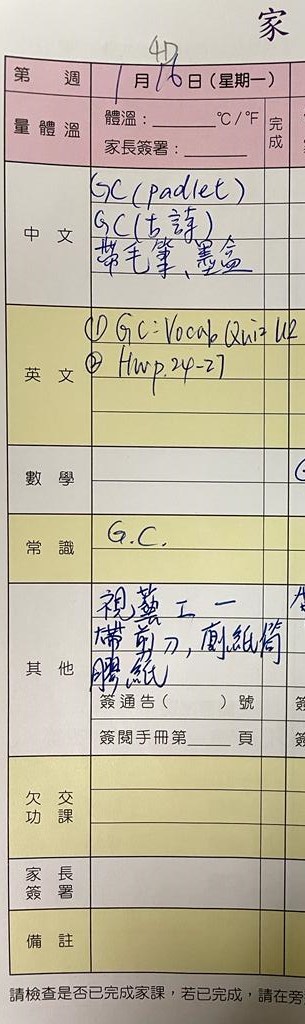 家
4D
第 週
1月16日(星期一)
量體溫
體溫:______℃/℉
家長簽署:______
完成
中文
GC(padlet)
GC(古詩)
帶毛筆、墨盒
英文
① GC:Vocab Quiz U2
② HWp.24-27
數學
常識
G.C.
其他
視藝工一
帶剪刀,廁紙筒
膠紙
簽通告( )號
簽閱手冊第____頁
欠交功課
家長簽署
備註
請檢查是否已完成家課,若已完成,請在旁